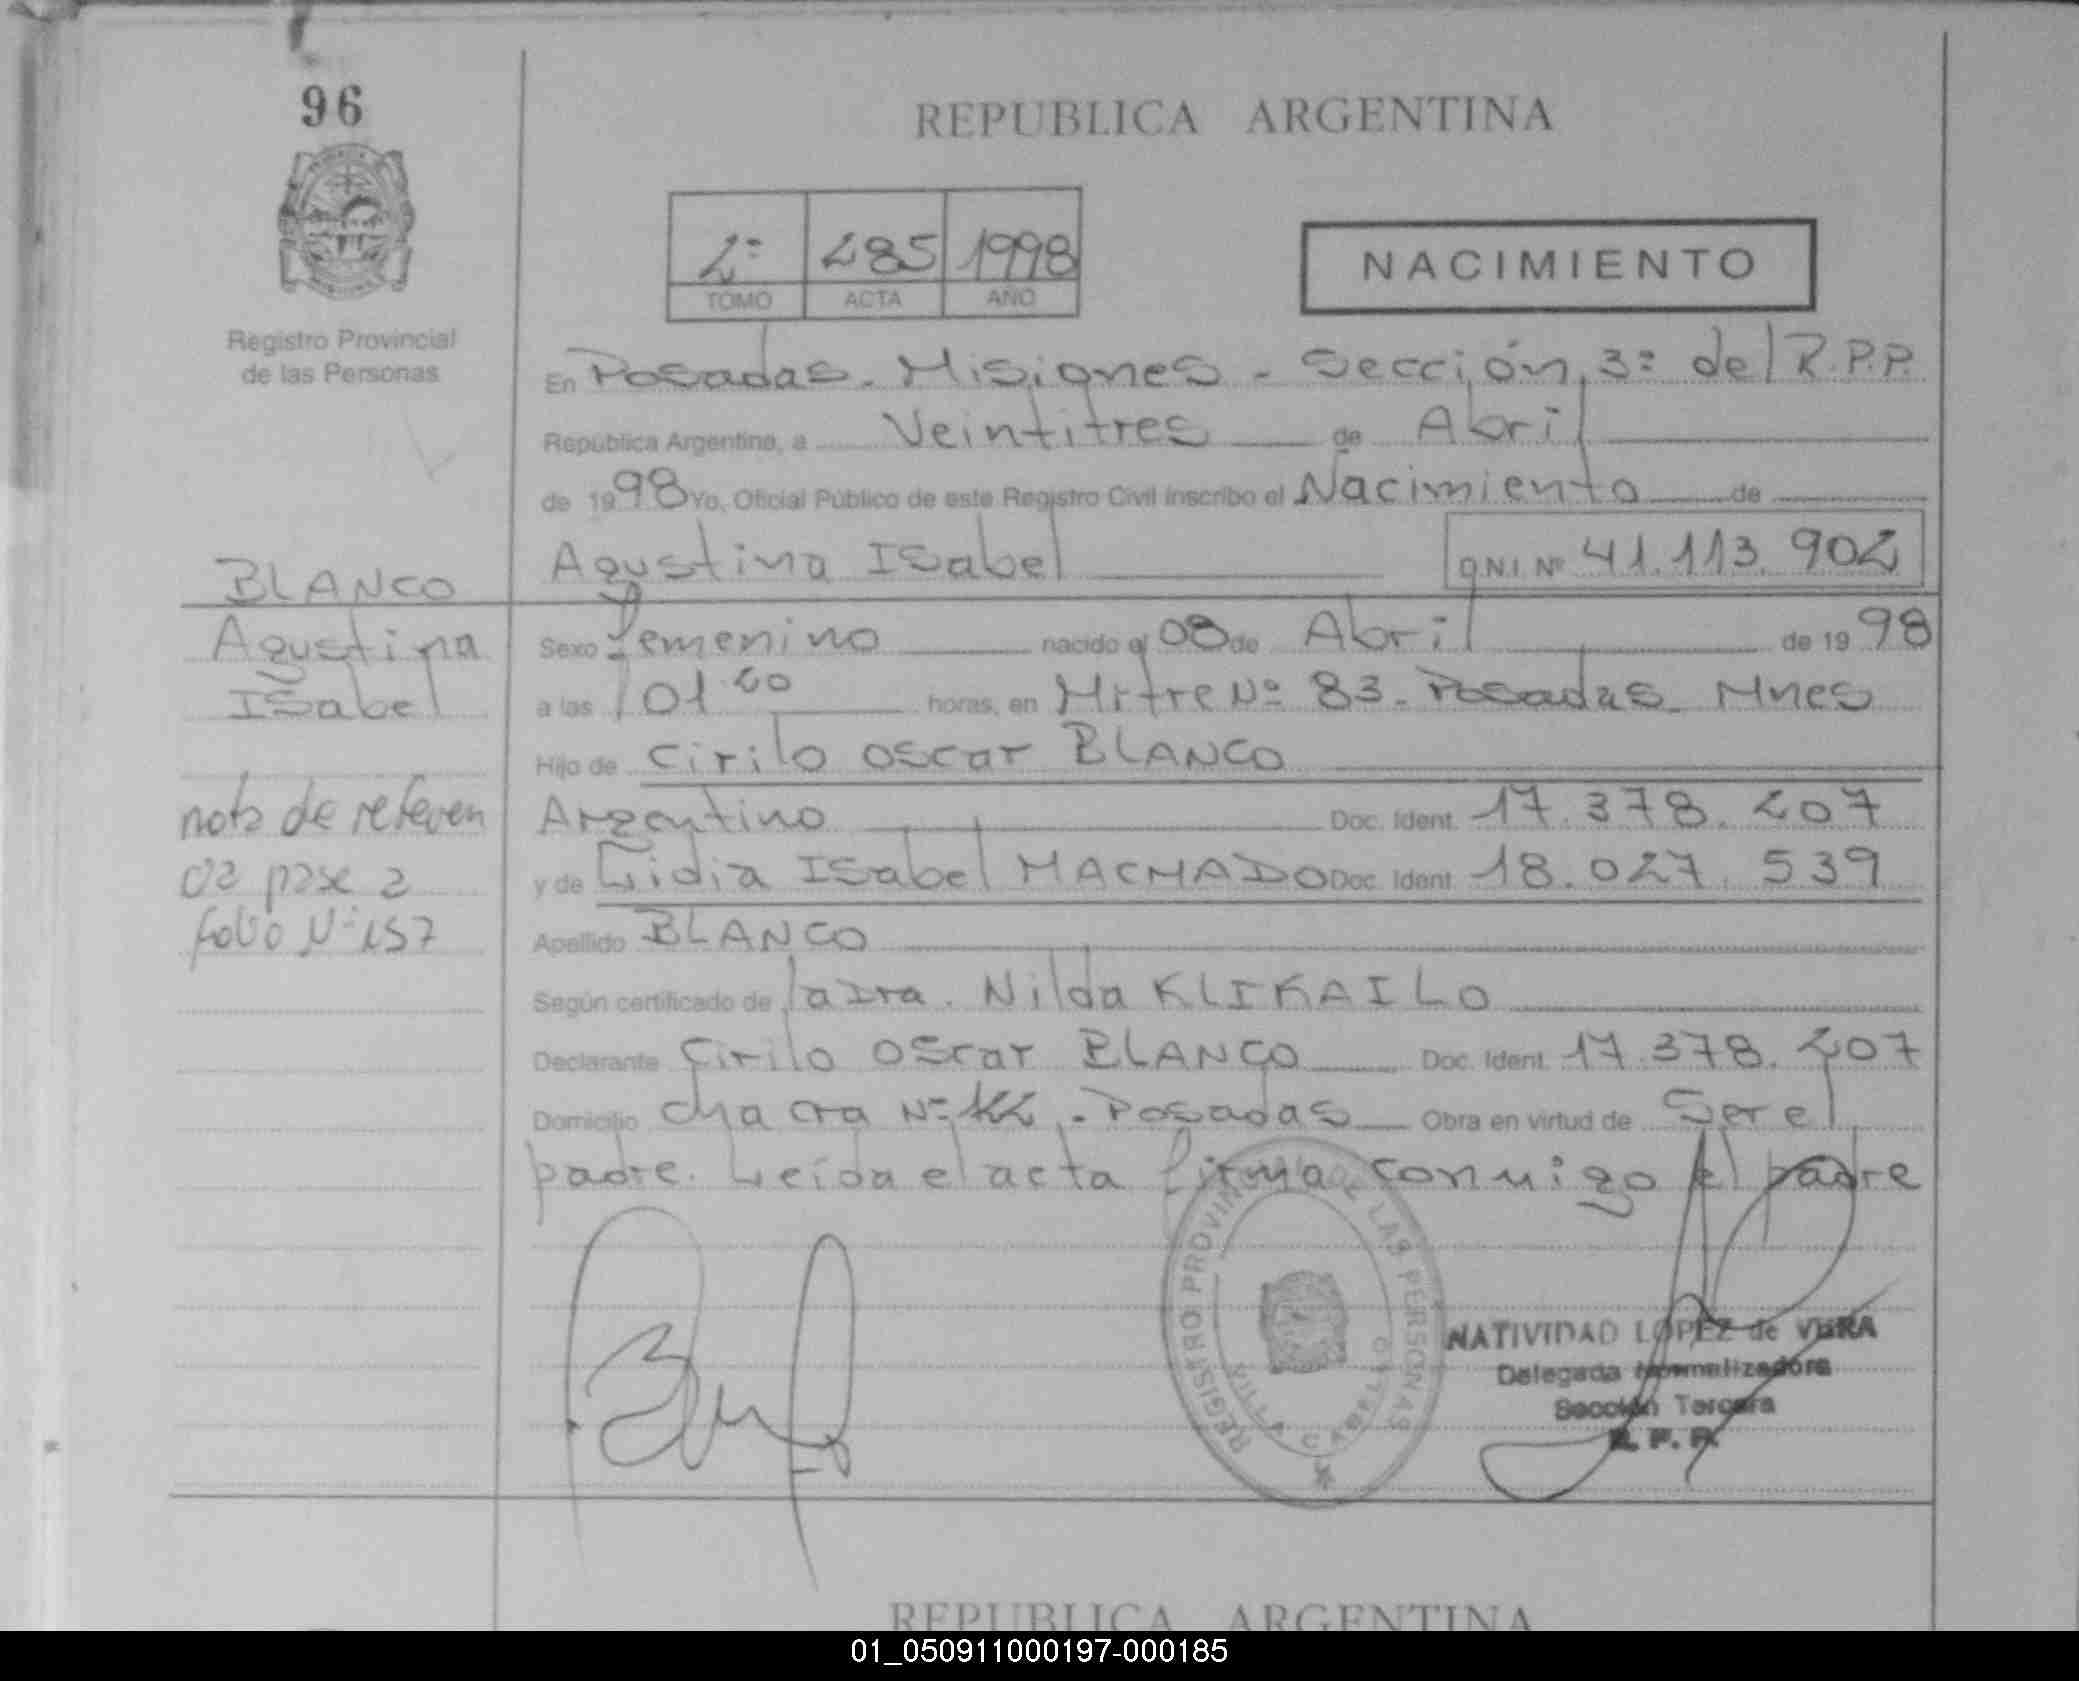 96
REPUBLICA ARGENTINA
2º 285 1998
TOMO ACTA AÑO
NACIMIENTO
Registro Provincial
de las Personas
En Posadas - Misiones - Sección 3º del R.P.P.
República Argentina, a Veintitres de Abril
de 1998 Yo, Oficial Público de este Registro Civil inscribo el Nacimiento de
Agustina Isabel D.N.I. Nº 41.113.902
BLANCO
Agustina
Isabel
nota de referen
cia pase a
folio Nº 157
Sexo femenino nacido el 08 de Abril de 1998
a las 01 20 horas, en Mitre Nº 83 - Posadas - Mnes
Hijo de Cirilo Oscar BLANCO
Argentino Doc. Ident. 17.378.207
y de Lidia Isabel MACHADO Doc. Ident. 18.027.539
Apellido BLANCO
Según certificado de la Dra. Nilda KLIKAILO
Declarante Cirilo Oscar BLANCO Doc. Ident. 17.378.207
Domicilio chacra Nº - Posadas Obra en virtud de Ser el
padre. Leída el acta firma conmigo el padre
REGISTRO PROVINCIAL DE LAS PERSONAS
VILLA CABELLO
NATIVIDAD LOPEZ de VERA
Delegada Normalizadora
Sección Tercera
R. P. P.
REPUBLICA ARGENTINA
01_050911000197-000185